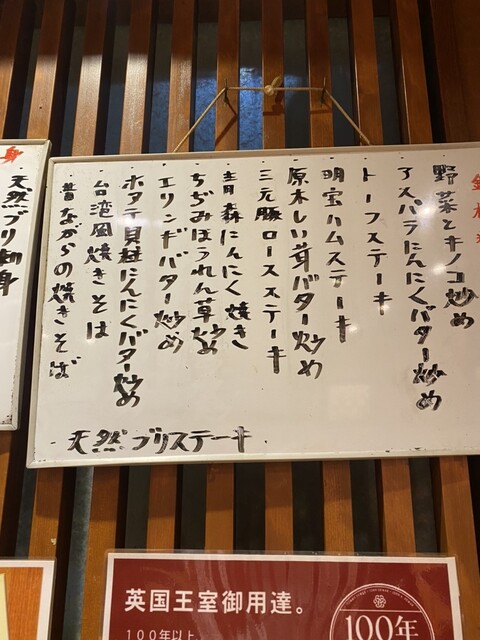 野菜とキノコ炒め
アスパラにんにくバター炒め
トーフステーキ
明宝ハムステーキ
原木しい茸バター炒め
三元豚ロースステーキ
青森にんにく焼き
ちぢみほうれん草炒め
エリンギバター炒め
ホタテ貝柱にんにくバター炒め
台湾風焼きそば
昔ながらの焼きそば
天然ブリステーキ
身
天然ブリ刺身
英国王室御用達。
100年以上
100年